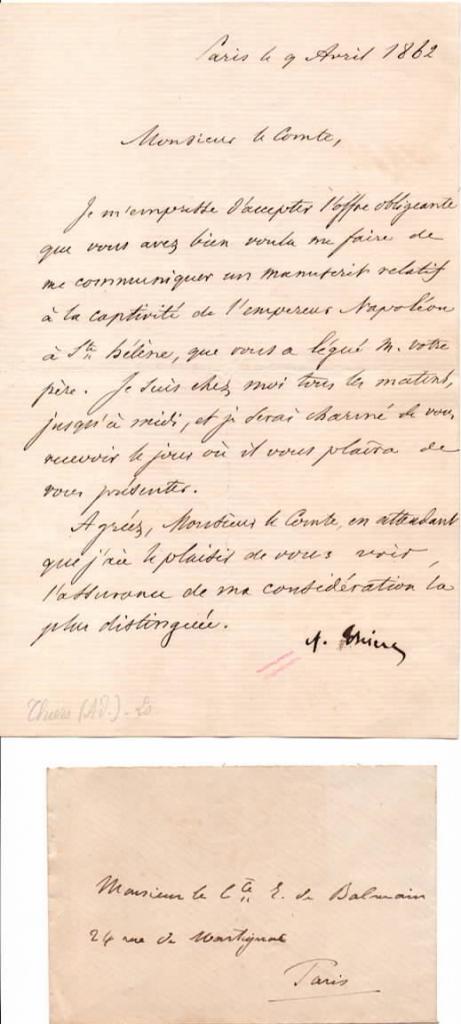 Paris le 9 Avril 1862
Monsieur le Comte,
Je m'empresse d'accepter l'offre obligeante
que vous avez bien voulu me faire de
me communiquer un manuscrit relatif
à la captivité de l'empereur Napoléon
à Ste hélène, que vous a légué M. votre
père. Je suis chez moi tous les matins,
jusqu'à midi, et je serai charmé de vous
recevoir le jour où il vous plaira de
vous présenter.
Agréez, Monsieur le Comte, en attendant
que j'aie le plaisir de vous voir,
l'assurance de ma considération la
plus distinguée.
A. Thiers
Thiers (Ad.) - 20
Monsieur le Cte E. de Balmain
24 rue de Martignac
Paris